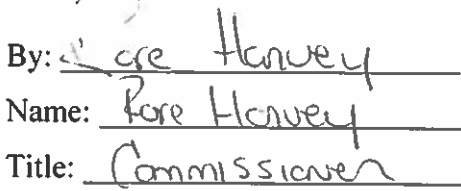 By: Rore Harvey
Name: Rore Harvey
Title: Commissioner